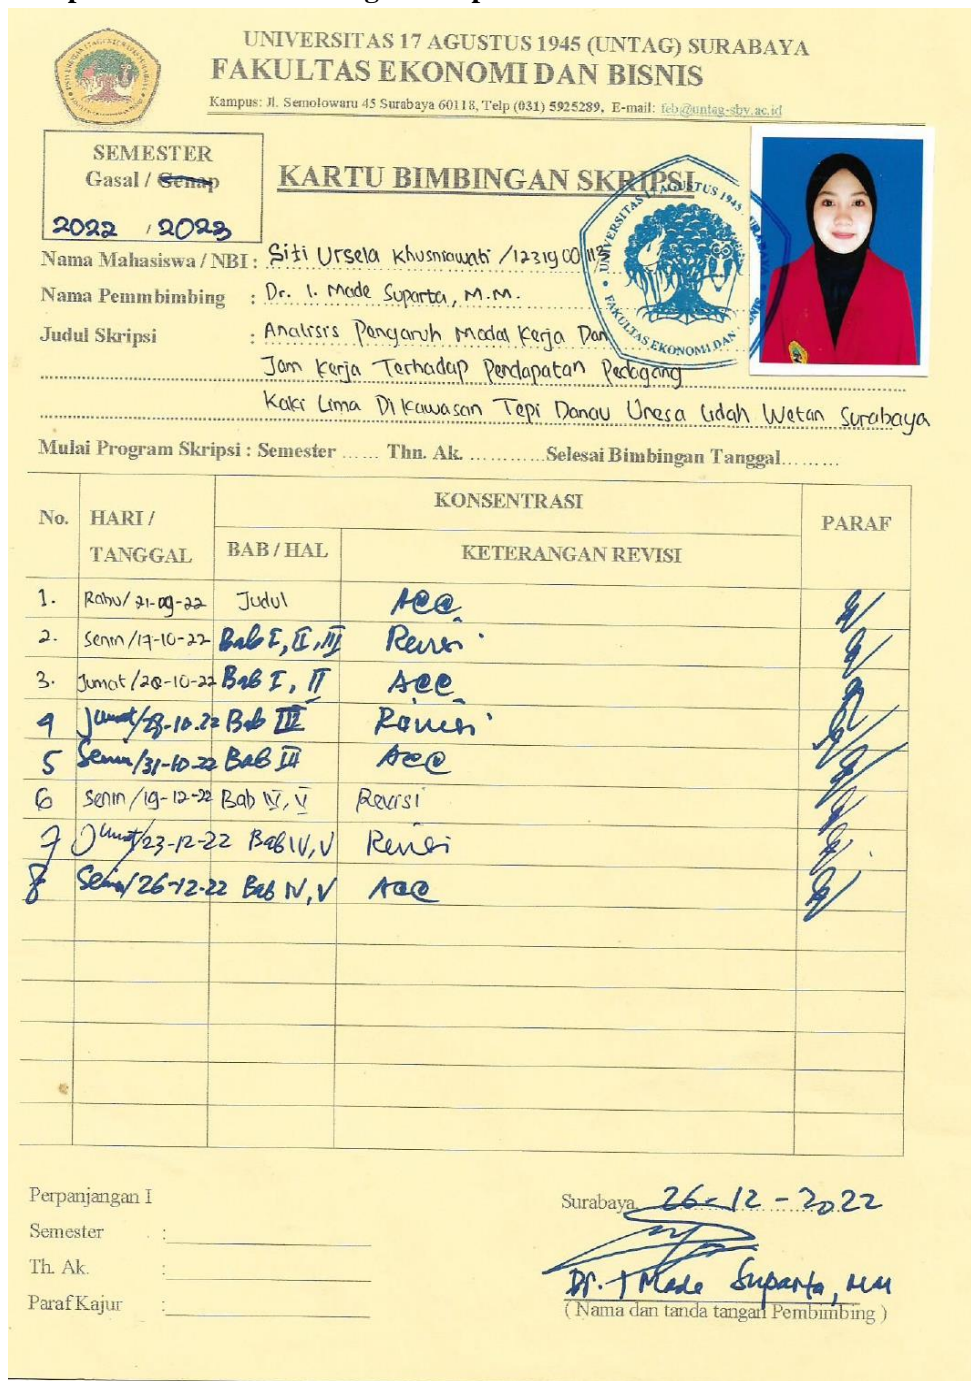 UNIVERSITAS 17 AGUSTUS 1945 (UNTAG) SURABAYA
FAKULTAS EKONOMI DAN BISNIS
Kampus: Jl. Semolowaru 45 Surabaya 60118, Telp (031) 5925289, E-mail: feb@untag-sby.ac.id
SEMESTER
Gasal / Genap
2022 / 2023
KARTU BIMBINGAN SKRIPSI
UNIVERSITAS 17 AGUSTUS 1945 SURABAYA
FAKULTAS EKONOMI DAN
Nama Mahasiswa / NBI : Siti Ursela Khusniawati / 1231900113
Nama Pemmbimbing : Dr. I. Made Suparta, M.M.
Judul Skripsi : Analisis Pengaruh Modal Kerja Dan
Jam Kerja Terhadap Pendapatan Pedagang
Kaki Lima Di Kawasan Tepi Danau Unesa Lidah Wetan Surabaya
Mulai Program Skripsi : Semester ...... Thn. Ak. ............Selesai Bimbingan Tanggal.........
No. HARI / TANGGAL KONSENTRASI PARAF
BAB / HAL KETERANGAN REVISI
1. Rabu/ 21-09-22 Judul Acc
2. Senin /17-10-22 Bab I, II, III Revisi
3. Jumat /28-10-22 Bab I, II Acc
4 Jumat/28-10.22 Bab III Revisi
5 Senin/31-10-22 Bab III Acc
6 Senin /19-12-22 Bab IV, V Revisi
7 Jumat/23-12-22 Bab IV, V Revisi
8 Senin/26-12-22 Bab IV, V Acc
Perpanjangan I
Semester :
Th. Ak. :
Paraf Kajur :
Surabaya, 26-12-2022
Dr. I Made Suparta, MM
( Nama dan tanda tangan Pembimbing )